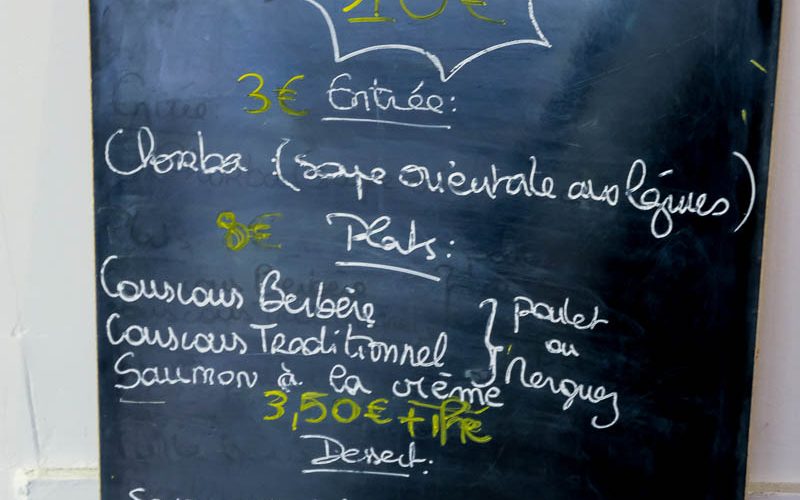 10€
3€ Entrée:
Chorba : (soupe orientale aux légumes)
8€ Plats:
Couscous Berbère
Couscous Traditionnel
} Poulet
ou
Merguez
Saumon à la crème
3,50€ + Thé
Dessert: